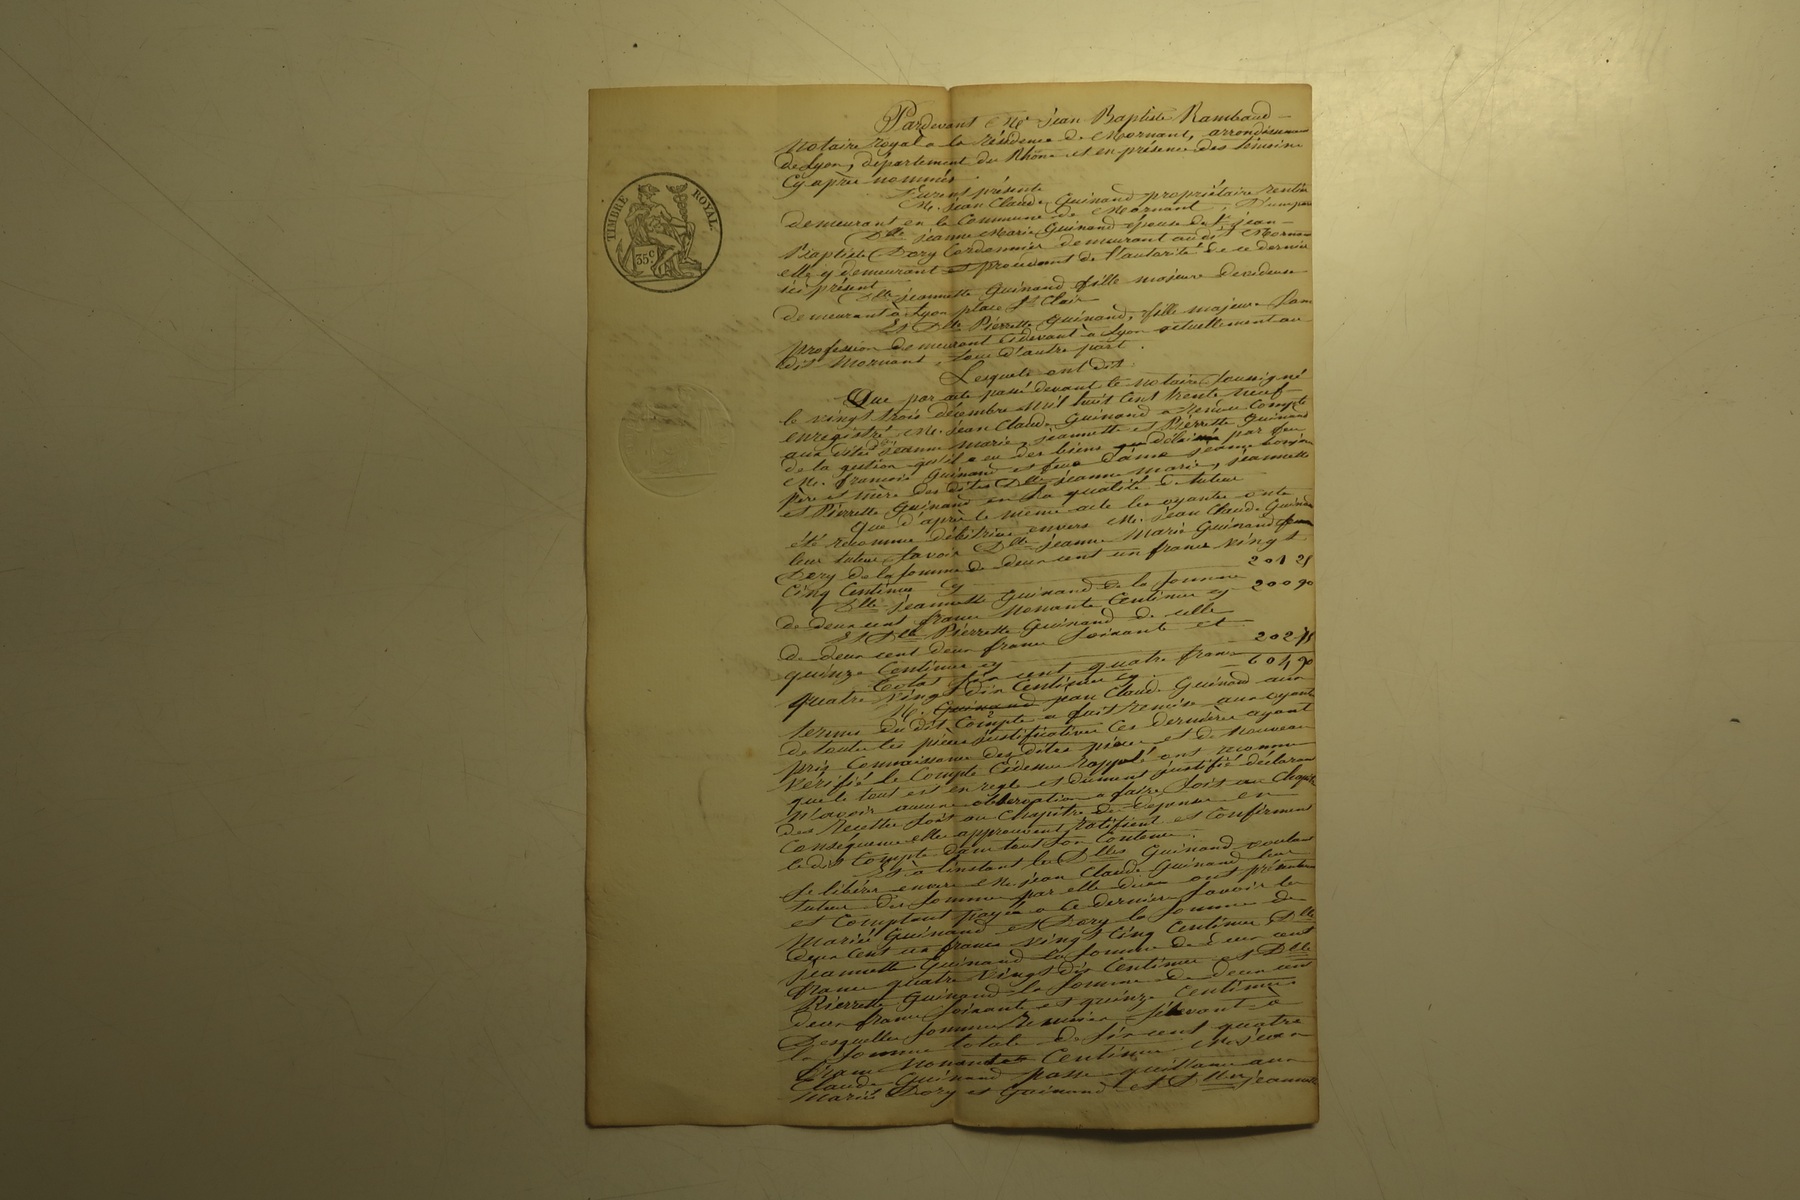 TIMBRE ROYAL
35 c
Pardevant Me jean Baptiste Rambaud
Notaire royal a la résidence de Mornant, arrondissement
de Lyon, département du Rhône et en présence des témoins
Cy après nommés
Furent présents
M. jean Claude Guinand propriétaire rentier
demeurant en la Commune de Mornant, D'une part
Dlle jeanne Marie Guinand épouse de Sr jean
Baptiste Dory Cordonnier demeurant audit Mornant
elle y demeurant et procédant de l'autorité de ce dernier
ici présent
Dlle jeannette Guinand fille majeure dévideuse
demeurant à Lyon place St Clair
Et Dlle Pierrette Guinand, fille majeure sans
profession demeurant cidevant à Lyon actuellement au
dit Mornant, tous d'autre part.
Lesquels ont dit
Que par acte passé devant le notaire soussigné
le vingt trois décembre mil huit cent trente neuf
enregistré, M. jean Claude Guinand a rendu Compte
aux dites jeanne Marie, jeannette et Pierrette Guinand
de la gestion qu'il a eu des biens délaissés par feu
M. françois Guinand et feue Dame jeanne
père et mère des dites Dlles jeanne Marie, jeannette
et Pierrette Guinand en sa qualité de tuteur
Que d'après le même acte les oyantes ont
été reconnue débitrice envers M. jean Claude Guinand
leur tuteur savoir Dlle jeanne Marie Guinand femme
Dory de la somme de deux cent un francs vingt
Cinq Centimes cy 201 25
Dlle jeannette Guinand de la somme
de deux cent francs nonante Centimes cy 200 90
Et Dlle Pierrette Guinand de celle
de deux cent deux francs soixante et
quinze Centimes cy 202 75
Total six cent quatre francs
quatre vingt dix Centimes cy. 604 90
M. Guinand jean Claude Guinand aux
termes du dit Compte a fait remise aux oyants
de toutes les pièces justificatives Ces dernières ayant
pris Connaissance des dites pièces et de nouveau
vérifié le Compte Cidessus rappelé ont reconnu
que le tout est en regle et dument justifié déclarant
n'avoir aucune observation a faire soit au Chapitre
des Recettes soit au Chapitre de dépense en
Conséquence elles approuvent, ratifient et Confirment
le dit Compte dans tout son Contenu.
Et à l'instant les Dlles Guinand voulant
se libérer envers M. jean Claude Guinand leur
tuteur des sommes par elle dues ont présentement
et Comptant payé a ce dernier savoir les
Mariés Guinand et Dory la somme de
deux Cent un francs vingt Cinq Centimes Dlle
jeannette Guinand la somme de deux cent
francs quatre vingt dix Centimes et Dlle
Pierrette Guinand la somme de deux cent
deux francs soixante et quinze Centimes
Desquelles sommes réunies s'élevant à
la somme totale de six cent quatre
francs nonante Centimes M. jean
Claude Guinand passe quittance aux
Mariés Dory et Guinand et Dlles jeannette